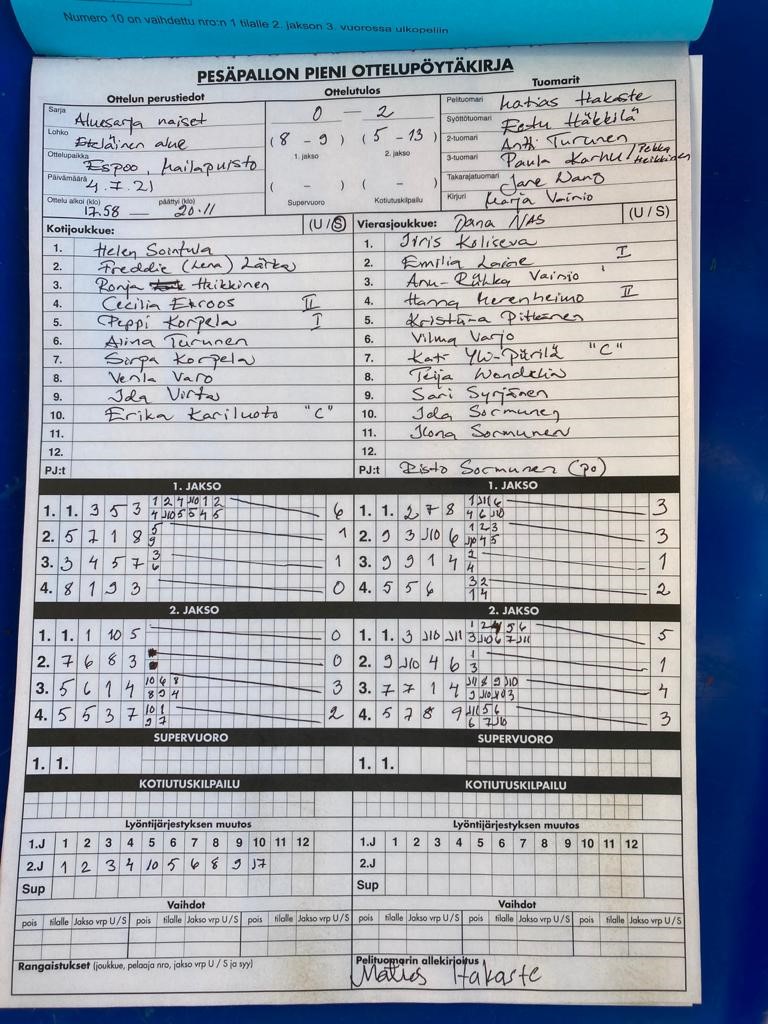 Numero 10 on vaihdettu nro:n 1 tilalle 2. jakson 3. vuorossa ulkopeliin
PESÄPALLON PIENI OTTELUPÖYTÄKIRJA
Ottelun perustiedot
Sarja Aluesarja naiset
Lohko Eteläinen alue
Ottelupaikka Espoo, Lailapuisto
Päivämäärä 4.7.21
Ottelu alkoi (klo) päättyi (klo)
17.58 — 20.11
Ottelutulos
0 — 2
( 8 - 9 ) ( 5 - 13 )
1. jakso 2. jakso
( - ) ( - )
Supervuoro Kotiutuskilpailu
Tuomarit
Pelituomari Matias Hakaste
Syöttötuomari Eetu Häkkilä
2-tuomari Antti Turunen
3-tuomari Paula Karhu / Pekka Heikkinen
Takarajatuomari Jane Wang
Kirjuri Marja Vainio
Kotijoukkue: (U / S)
1. Helen Sointula
2. Freddie (Lena) Lätkä
3. Ronja Heikkinen
4. Cecilia Ekroos II
5. Peppi Korpela I
6. Alina Turunen
7. Sirpa Korpela
8. Venla Varo
9. Ida Virta
10. Erika Kariluoto "C"
11.
12.
PJ:t
Vierasjoukkue: Dana NAS (U / S)
1. Iiris Koliseva
2. Emilia Laine I
3. Anu-Riikka Vainio
4. Hanna Merenheimo II
5. Kristiina Pitkänen
6. Vilma Varjo
7. Kati Yli-Pirilä "C"
8. Teija Wendelin
9. Sari Syrjänen
10. Ida Sormunen
11. Ilona Sormunen
12.
PJ:t Risto Sormunen (po)
1. JAKSO
1. 1. 3 5 3 1 2 4 J10 1 2 6
4 J10 5 5 4 5
2. 5 7 1 8 5 1
9
3. 3 4 5 7 3 1
6
4. 8 1 9 3 0
1. JAKSO
1. 1. 2 7 8 1 J11 6 3
4 6 J10
2. 9 3 J10 6 1 2 3 3
J10 4 5
3. 9 9 1 4 2 1
4
4. 5 5 6 3 2 2
1 4
2. JAKSO
1. 1. 1 10 5 0
2. 7 6 8 3 0
3. 5 6 1 4 10 6 8 3
8 9 4
4. 5 5 3 7 10 1 2
9 7
2. JAKSO
1. 1. 3 J10 J11 1 2 5 6 5
3 J10 6 7 J11
2. 9 J10 4 6 1 1
3
3. 7 7 1 4 J11 8 9 J10 4
9 J10 J10 3
4. 5 7 8 9 J11 5 6 3
6 7 J10
SUPERVUORO
1. 1.
SUPERVUORO
1. 1.
KOTIUTUSKILPAILU
KOTIUTUSKILPAILU
Lyöntijärjestyksen muutos
1.J 1 2 3 4 5 6 7 8 9 10 11 12
2.J 1 2 3 4 10 5 6 8 9 J7
Sup
Lyöntijärjestyksen muutos
1.J 1 2 3 4 5 6 7 8 9 10 11 12
2.J
Sup
Vaihdot
pois tilalle Jakso vrp U / S pois tilalle Jakso vrp U / S pois tilalle Jakso vrp U / S
Vaihdot
pois tilalle Jakso vrp U / S pois tilalle Jakso vrp U / S pois tilalle Jakso vrp U / S
Rangaistukset (joukkue, pelaaja nro, jakso vrp U / S ja syy)
Pelituomarin allekirjoitus
Matias Hakaste